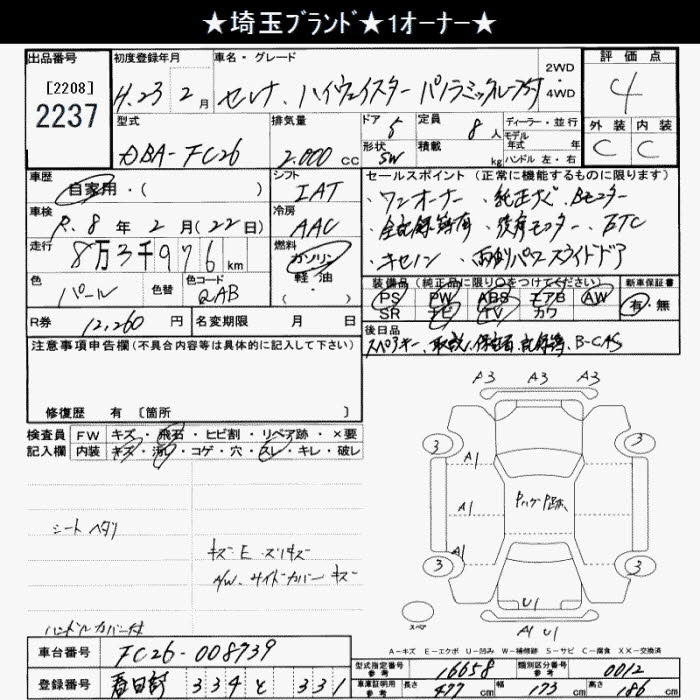 ★埼玉ブランド★1オーナー★
出品番号 初度登録年月 車名・グレード 評価点
[2208]
2237
H.23年2月 セレナ、ハイウェイスター 2WD・4WD 4
型式 排気量 ドア 5 定員 8人 ディーラー・並行 外装 内装
DBA-FC26 2.000cc 形状 SW 積載 kg モデル年式 年 ハンドル 左・右 C C
車歴 自家用・( ) シフト IAT セールスポイント (正常に機能するものに限ります)
車検 R.8年2月(22日) 冷房 AAC ・ワンオーナー ・純正ナビ・Bモニター
走行 8万3千976km 燃料 ガソリン・軽油・( ) ・ETC
・キセノン ・両側パワースライドドア
色 パール 色替 色コード QAB 装備品 (純正品に限り○をつけてください) 新車保証書
PS PW ABS エアB AW 有・無
SR ナビ TV カワ
R券 12,260円 名変期限 月 日 後日品
スペアキー、取説、保証書、記録簿、B-CAS
注意事項申告欄(不具合内容等は具体的に記入して下さい)
修復歴 有 [箇所 ]
検査員記入欄 FW キズ・飛石・ヒビ割・リペア跡・×要
内装 キズ・汚れ・コゲ・穴・スレ・キレ・破レ
シートヘタリ
キズ・E・スリキズ
A/W、サイドカバーキズ
ハンドルカバー付
A3 A3 A3
3 3
A1
A1
A1
3 3
U1
A1 U1
スペア
A-キズ E-エクボ U-凹み W-補修跡 S-サビ C-腐食 XX-交換済
車台番号 FC26-008739
登録番号 春日部 334 と 331
型式指定番号 参考 16658 類別区分番号 参考 0012
車庫証明用 参考 長さ 477cm 幅 173cm 高さ 186cm